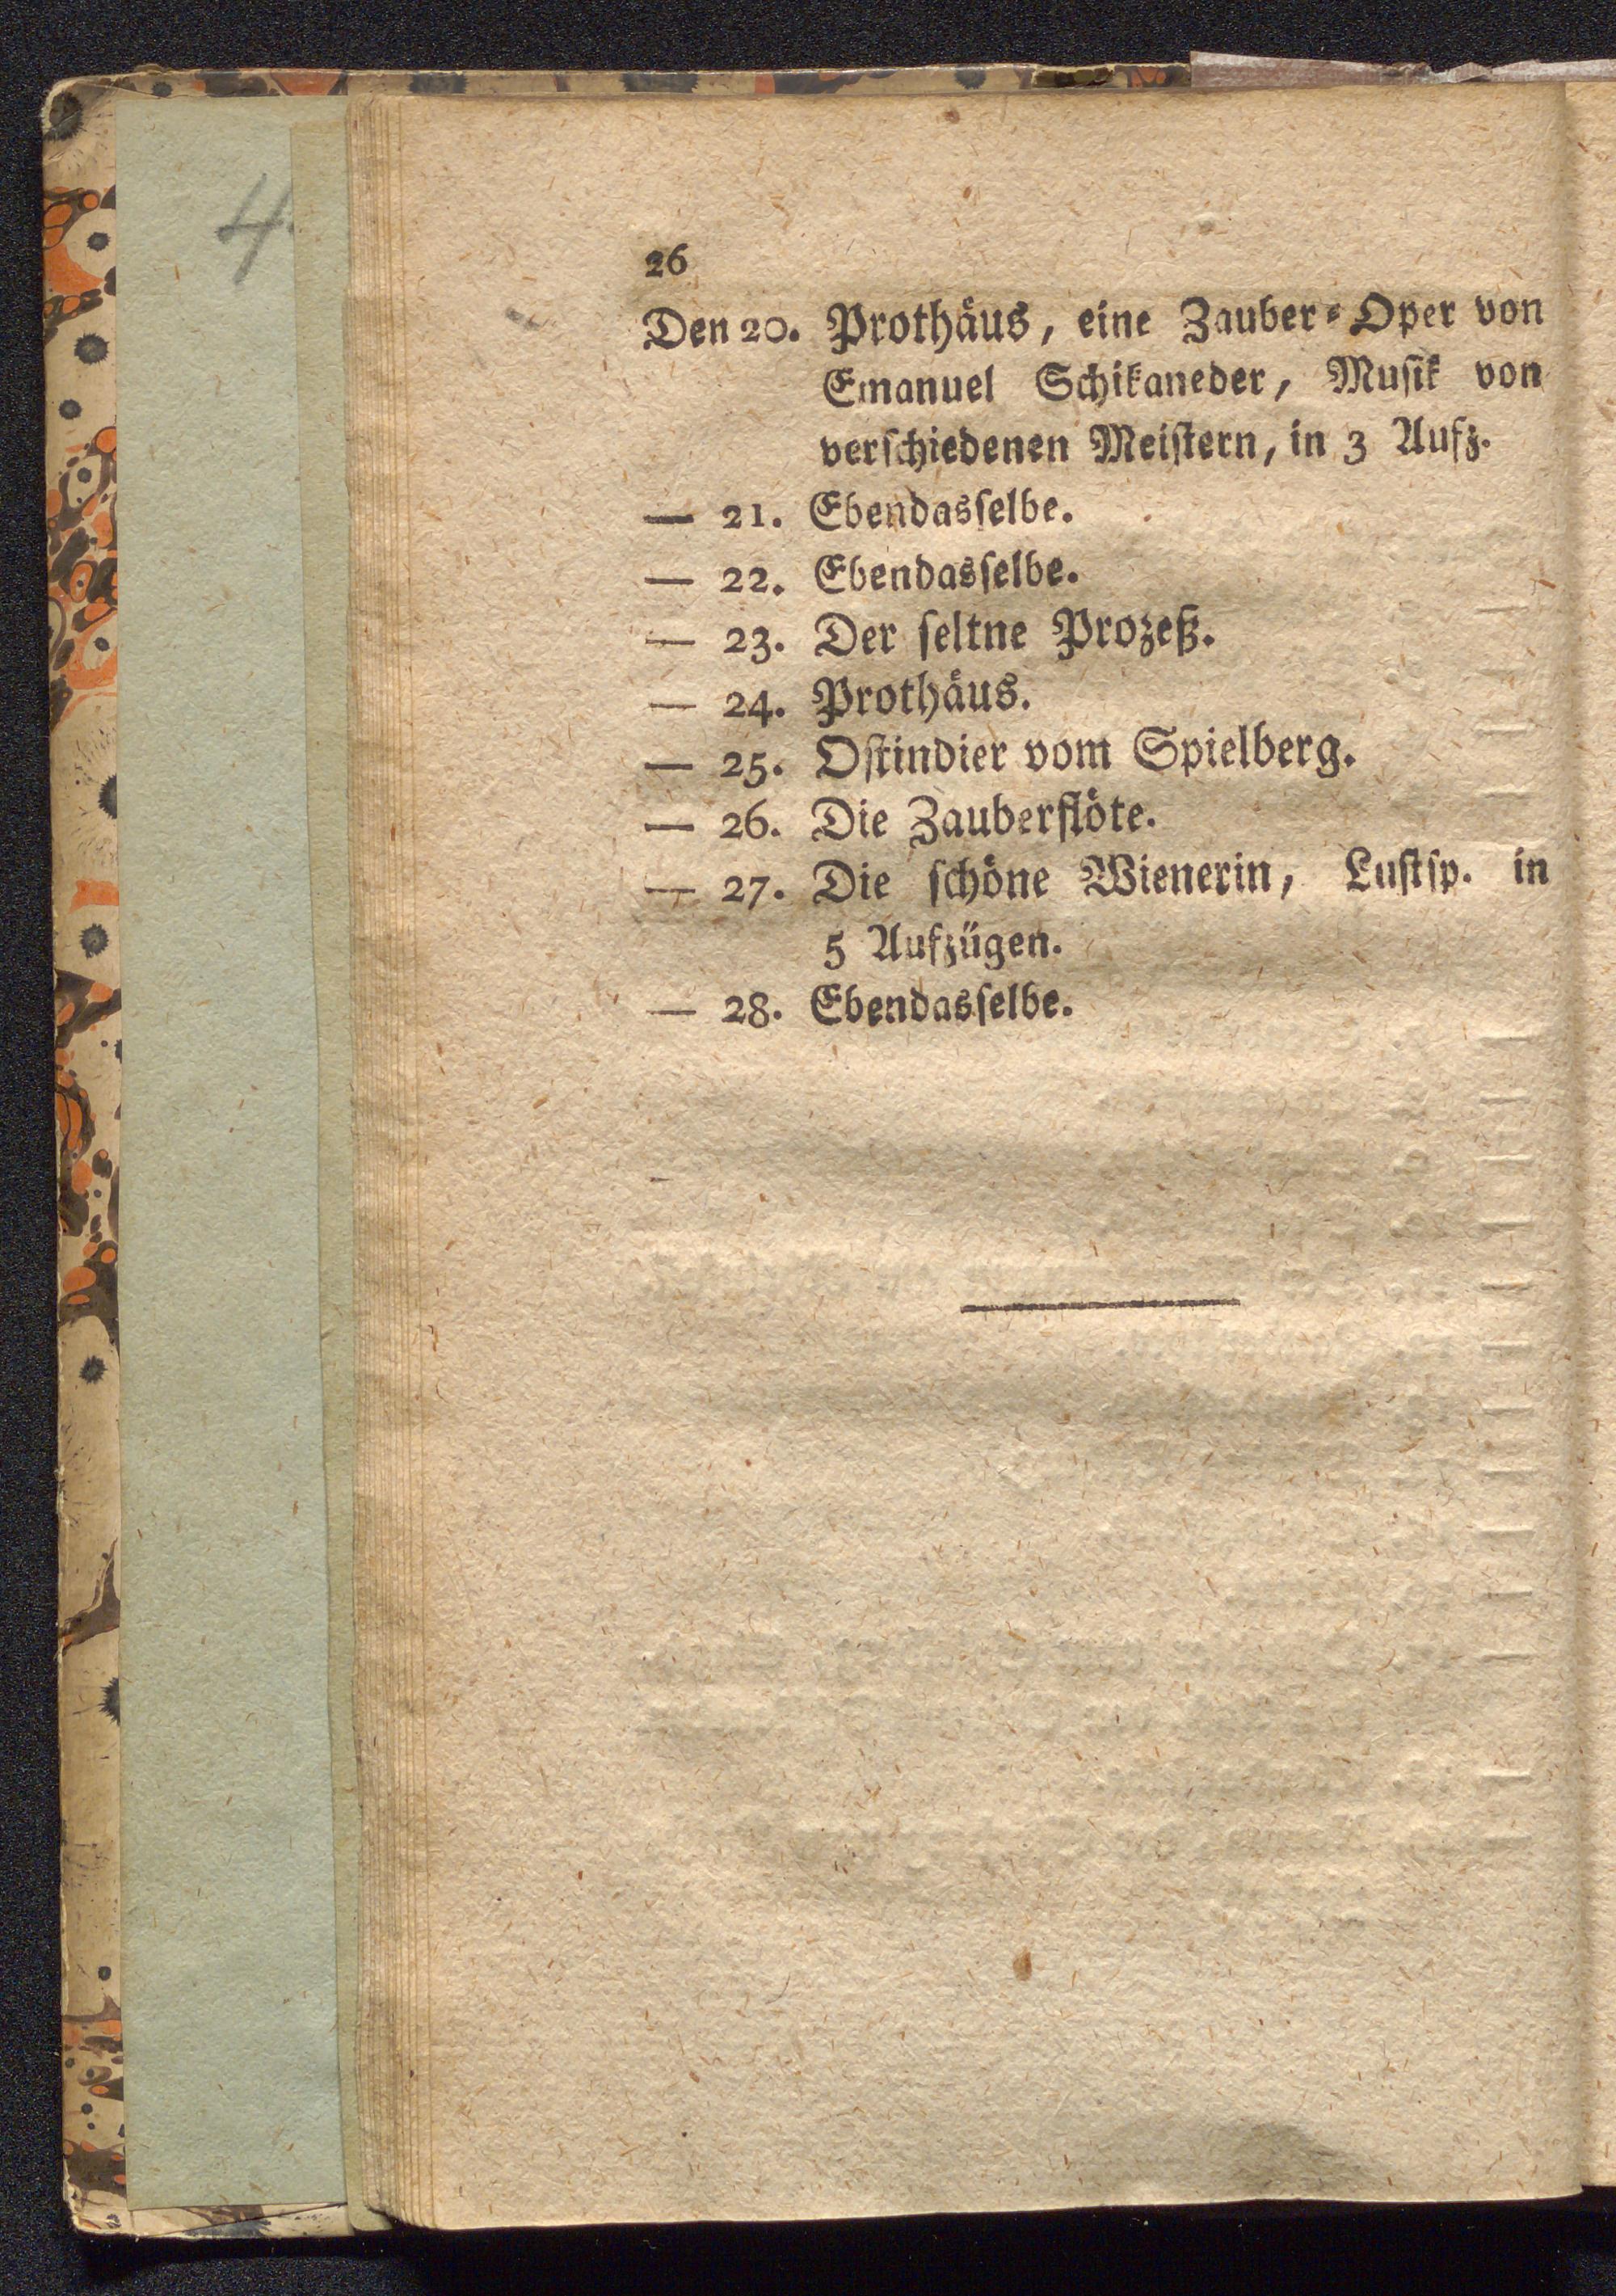 4.
26
Den 20. Prothäus, eine Zauber⸗Oper von
Emanuel Schikaneder, Muſik von
verſchiedenen Meiſtern, in 3 Aufz.
— 21. Ebendasſelbe.
— 22. Ebendasſelbe.
— 23. Der ſeltne Prozeß.
— 24. Prothäus.
— 25. Oſtindier vom Spielberg.
— 26. Die Zauberflöte.
— 27. Die ſchöne Wienerin, Luſtſp. in
5 Aufzügen.
— 28. Ebendasſelbe.